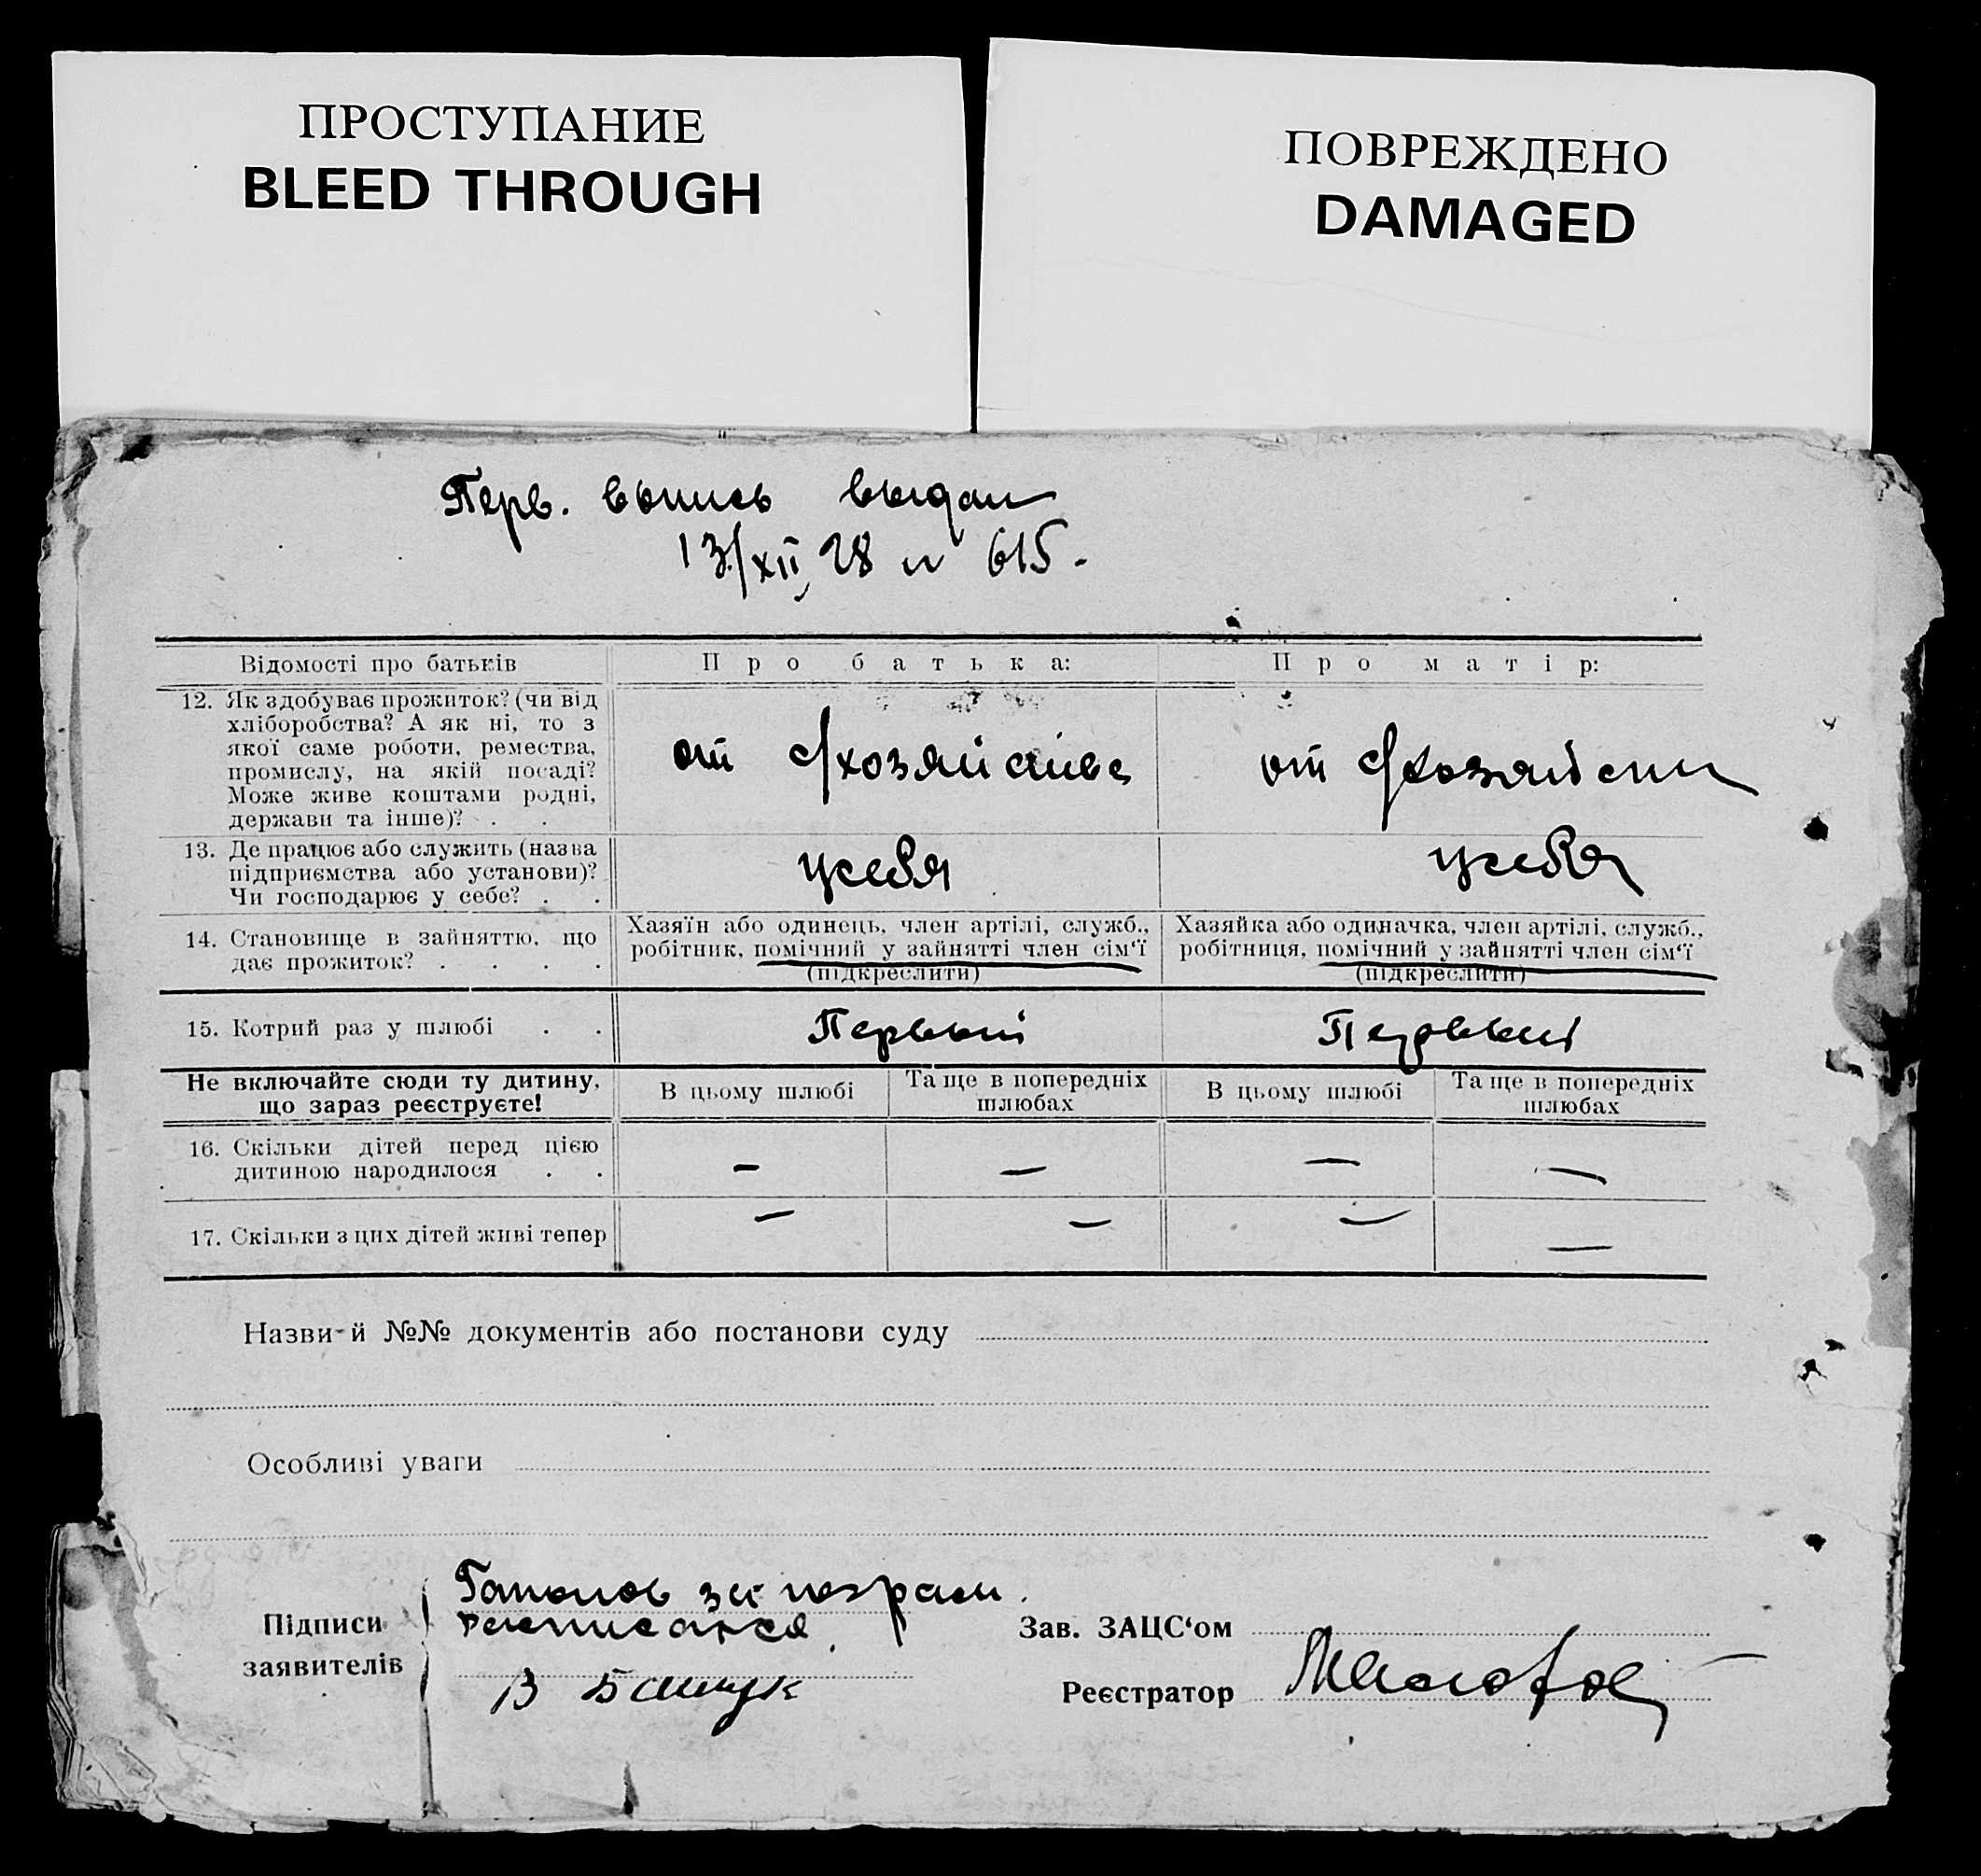 ПРОСТУПАНИЕ
BLEED THROUGH
ПОВРЕЖДЕНО
DAMAGED
Перв. выпись выдан
13/XII 28 № 615.
Відомості про батьків
Про батька:
Про матір:
12. Як здобуває прожиток? (чи від
хліборобства? А як ні, то з
якої саме роботи, ремества,
промислу, на якій посаді?
Може живе коштами родні,
держави та інше)? . .
от с/хозяйства
от с/хозяйств
13. Де працює або служить (назва
підприємства або установи)?
Чи господарює у себе? . .
у себя
у себя
14. Становище в зайняттю, що
дає прожиток? . . . .
Хазяїн або одинець, член артілі, служб.,
робітник, помічний у зайнятті член сім‘ї
(підкреслити)
Хазяйка або одиначка, член артілі, служб.,
робітниця, помічний у зайнятті член сім‘ї
(підкреслити)
15. Котрий раз у шлюбі . .
Первый
Первый
Не включайте сюди ту дитину,
що зараз реєструєте!
В цьому шлюбі
Та ще в попередніх
шлюбах
В цьому шлюбі
Та ще в попередніх
шлюбах
16. Скільки дітей перед цією
дитиною народилося . .
— — — —
17. Скільки з цих дітей живі тепер
— — — —
Назви й №№ документів або постанови суду
Особливі уваги
Підписи
заявителів
расписался.
В
Зав. ЗАЦС‘ом
Реєстратор